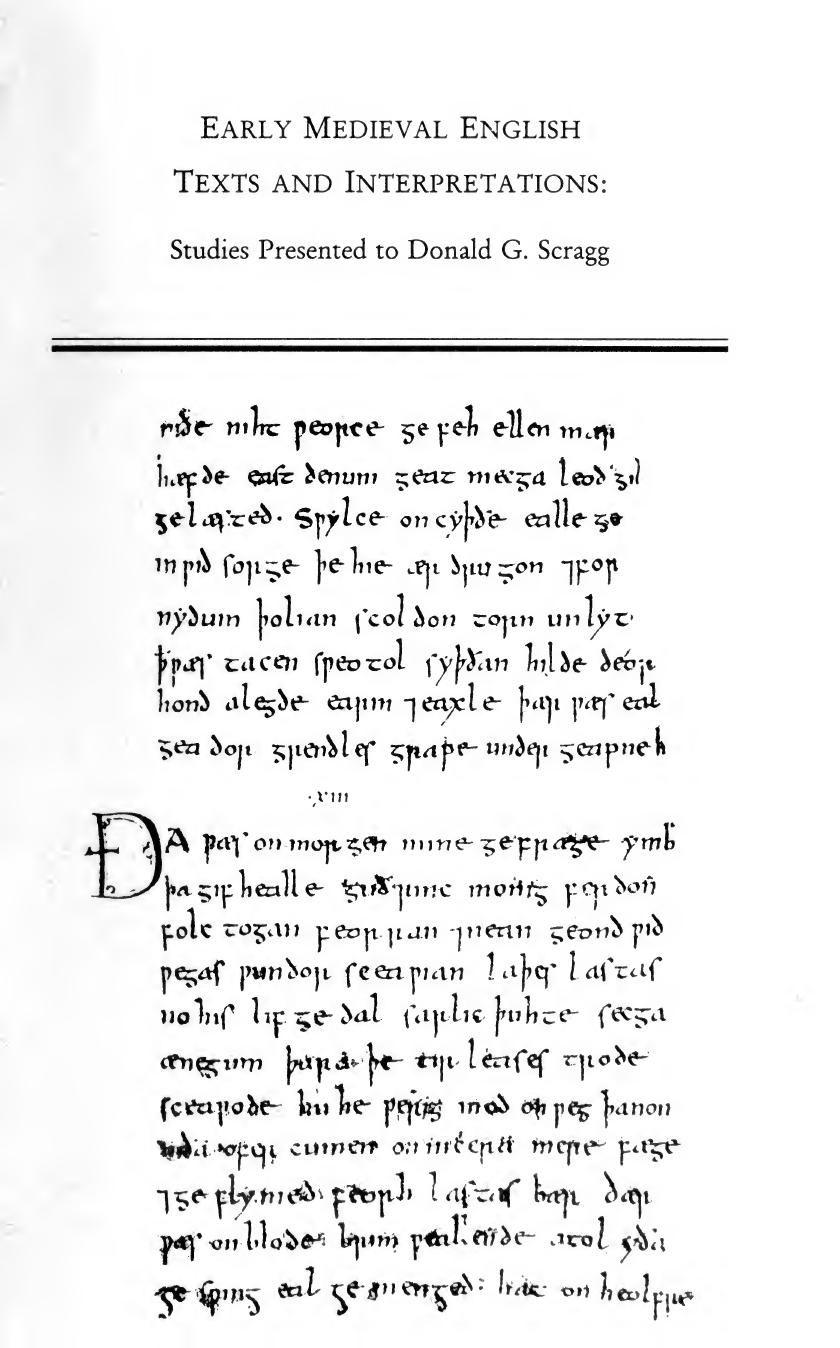 EARLY MEDIEVAL ENGLISH
TEXTS AND INTERPRETATIONS:
Studies Presented to Donald G. Scragg
niht ƿeorce ge feh ellen mær
hæfde east denum geat mecga leod gil
gelæsted. Sƿylce oncyþðe ealle ge
in ƿid sorge þe hie ær drugon ⁊for
nydum þolian scoldon torn unlyt
ꝥƿæs tacen sƿeotol syþðan hilde deor
hond alegde earm ⁊eaxle þær ƿæs eal
gea dor grendles grape under geapne h
·xiii
ÐA ƿæs on morgen mine gefrage ymb
þa gif healle guðrinc monig ferdon
folc togan feorran ⁊nean geond ƿid
ƿegas ƿundor sceaƿian laþes lastas
no his lif ge dal sarlic þuhte secga
ænegum þara þe tir leases trode
sceaƿode hu he ƿerig mod on ƿeg þanon
niða ofer cumen on nicera mere fæge
⁊ge flymed feorh lastas bær ðær
ƿæs on blode brim ƿeallende atol yða
ge sƿing eal ge menged hat on heolfre